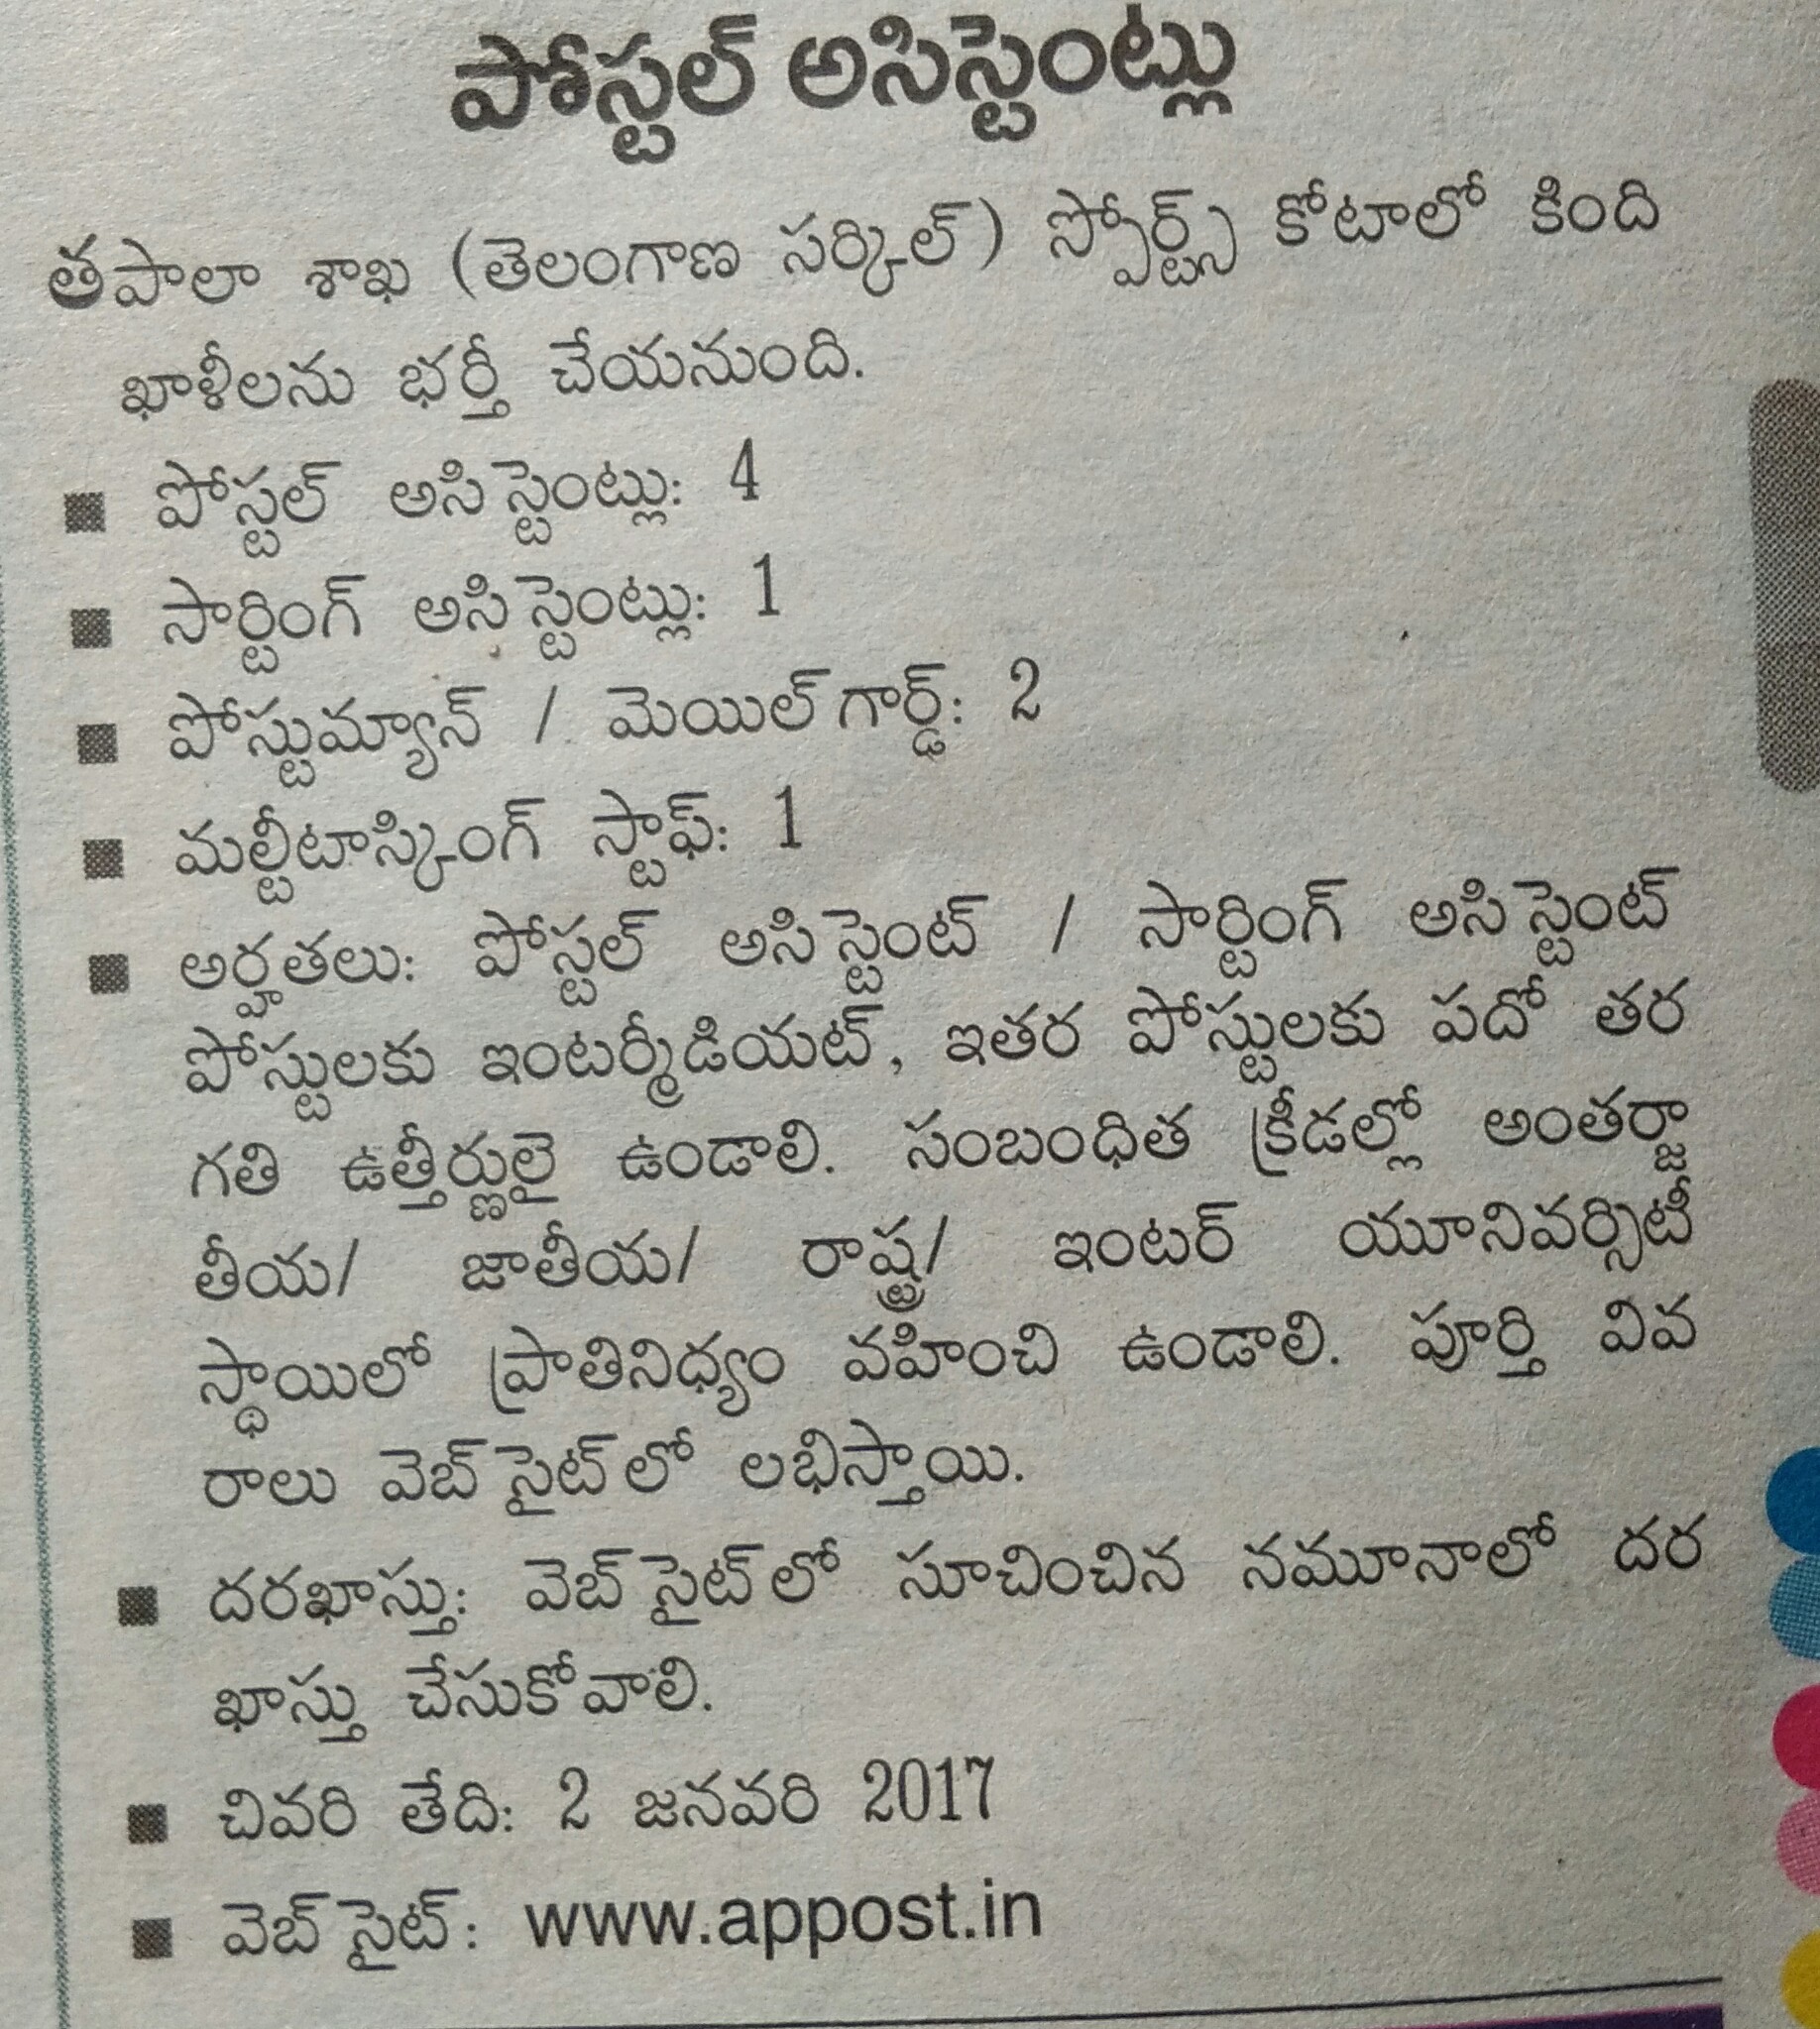 పోస్టల్ అసిస్టెంట్లు
తపాలా శాఖ (తెలంగాణ సర్కిల్) స్పోర్ట్స్ కోటాలో కింది
ఖాళీలను భర్తీ చేయనుంది.
■ పోస్టల్ అసిస్టెంట్లు: 4
■ సార్టింగ్ అసిస్టెంట్లు: 1
■ పోస్టుమ్యాన్ / మెయిల్‌గార్డ్: 2
■ మల్టీటాస్కింగ్ స్టాఫ్: 1
■ అర్హతలు: పోస్టల్ అసిస్టెంట్ / సార్టింగ్ అసిస్టెంట్
పోస్టులకు ఇంటర్మీడియట్, ఇతర పోస్టులకు పదో తర
గతి ఉత్తీర్ణులై ఉండాలి. సంబంధిత క్రీడల్లో అంతర్జా
తీయ/ జాతీయ/ రాష్ట్ర/ ఇంటర్ యూనివర్సిటీ
స్థాయిలో ప్రాతినిధ్యం వహించి ఉండాలి. పూర్తి వివ
రాలు వెబ్‌సైట్‌లో లభిస్తాయి.
■ దరఖాస్తు: వెబ్‌సైట్‌లో సూచించిన నమూనాలో దర
ఖాస్తు చేసుకోవాలి.
■ చివరి తేది: 2 జనవరి 2017
■ వెబ్‌సైట్: www.appost.in